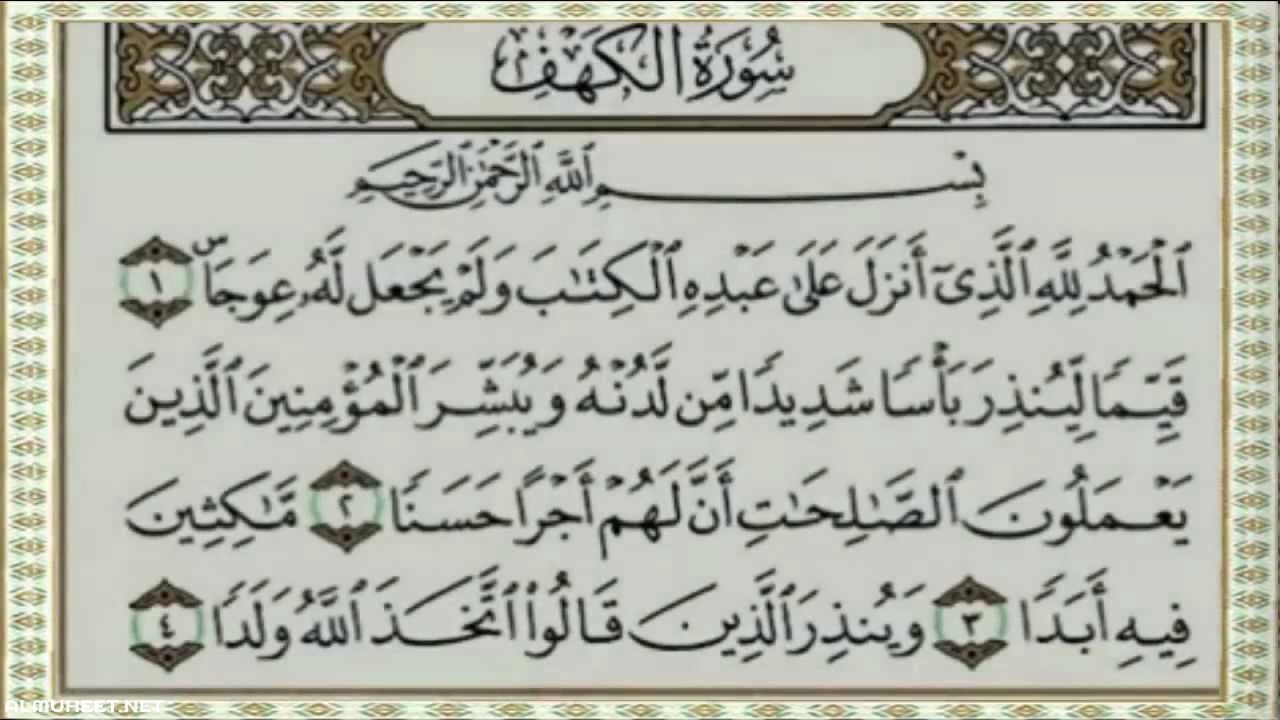 سُورَةُ الكَهْفِ
بِسْمِ ٱللَّهِ ٱلرَّحْمَٰنِ ٱلرَّحِيمِ
ٱلْحَمْدُ لِلَّهِ ٱلَّذِىٓ أَنزَلَ عَلَىٰ عَبْدِهِ ٱلْكِتَٰبَ وَلَمْ يَجْعَل لَّهُۥ عِوَجَاۜ ١
قَيِّمًا لِّيُنذِرَ بَأْسًا شَدِيدًا مِّن لَّدُنْهُ وَيُبَشِّرَ ٱلْمُؤْمِنِينَ ٱلَّذِينَ
يَعْمَلُونَ ٱلصَّٰلِحَٰتِ أَنَّ لَهُمْ أَجْرًا حَسَنًا ٢ مَّٰكِثِينَ
فِيهِ أَبَدًا ٣ وَيُنذِرَ ٱلَّذِينَ قَالُوا۟ ٱتَّخَذَ ٱللَّهُ وَلَدًا ٤
ALMUHEET.NET